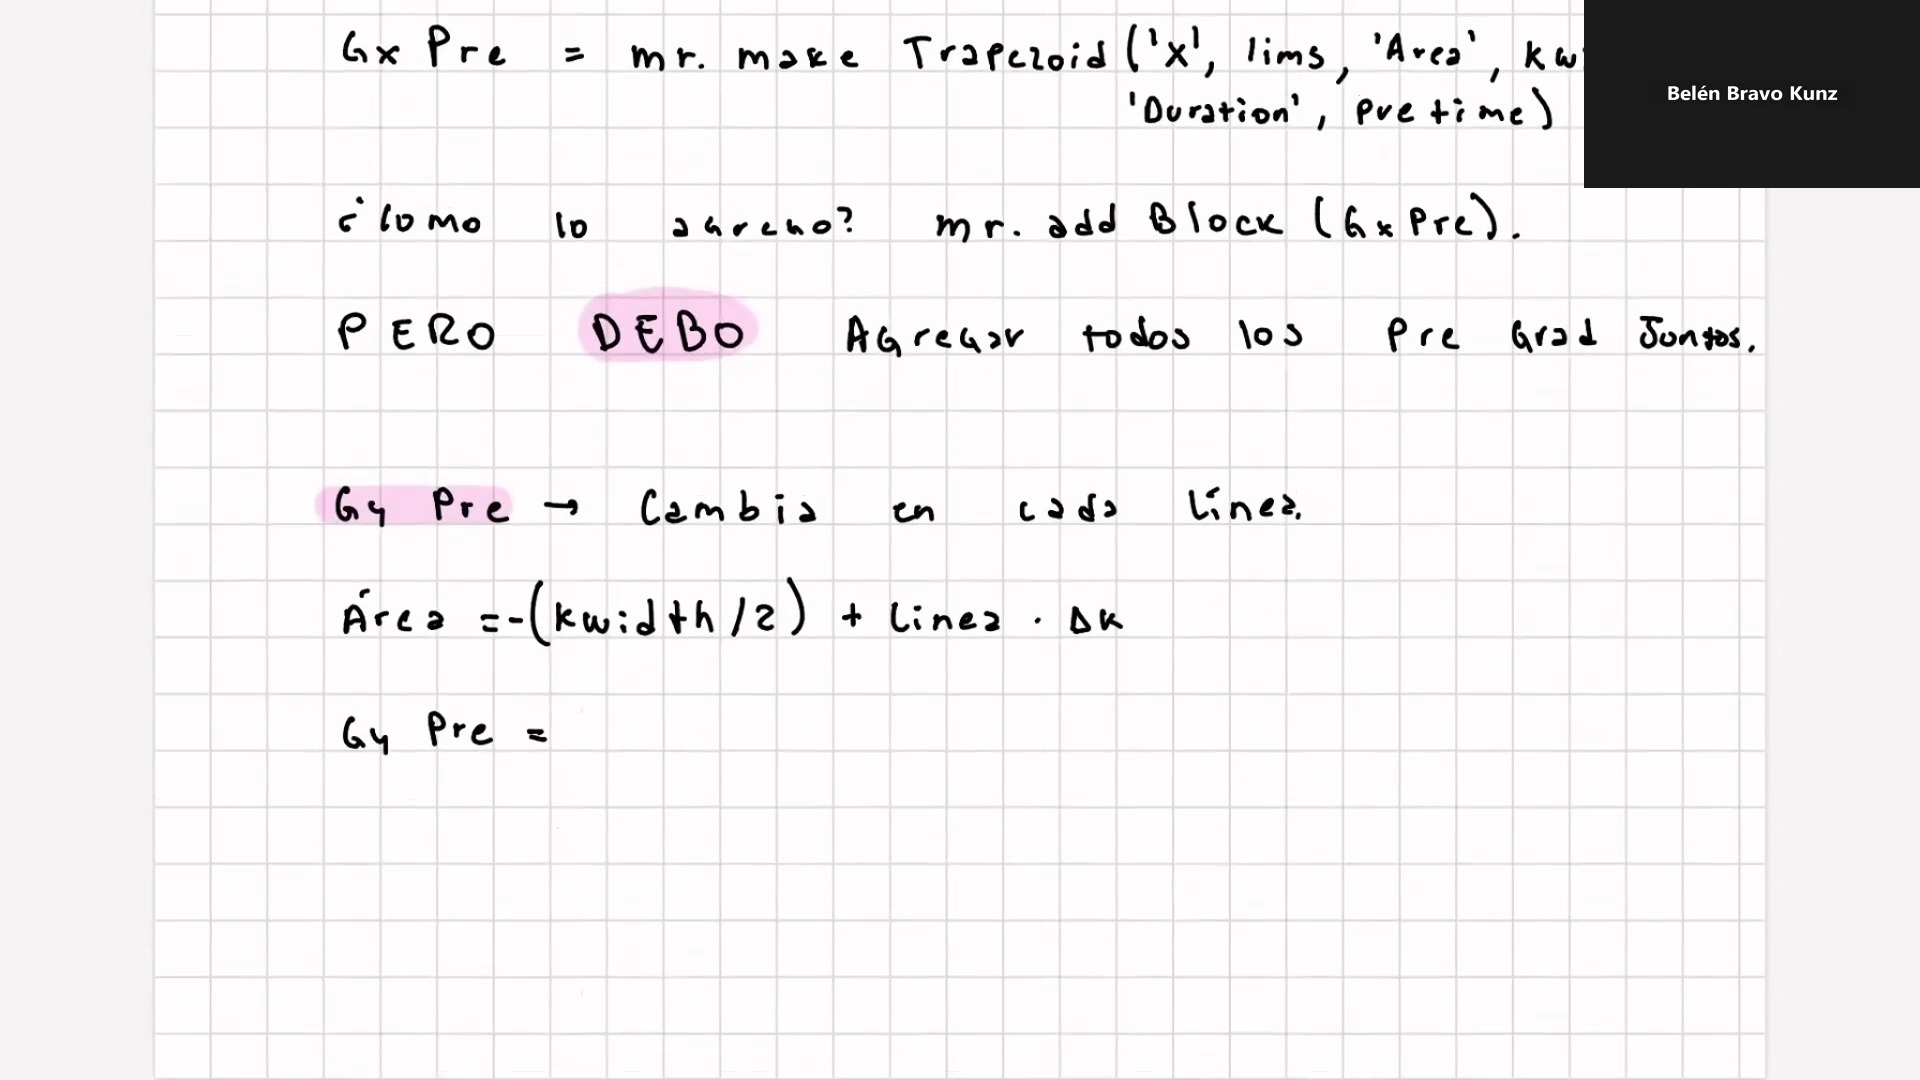 Gx Pre = mr. make Trapezoid ('x', lims, 'Area', kw
'Duration', pre time)
Belén Bravo Kunz
¿Como lo agrego? mr. add Block (Gx Pre).
PERO DEBO Agregar todos los Pre Grad Juntos.
Gy Pre → Cambia en cada línea.
Área = -(kwidth/2) + linea · Δk
Gy Pre =